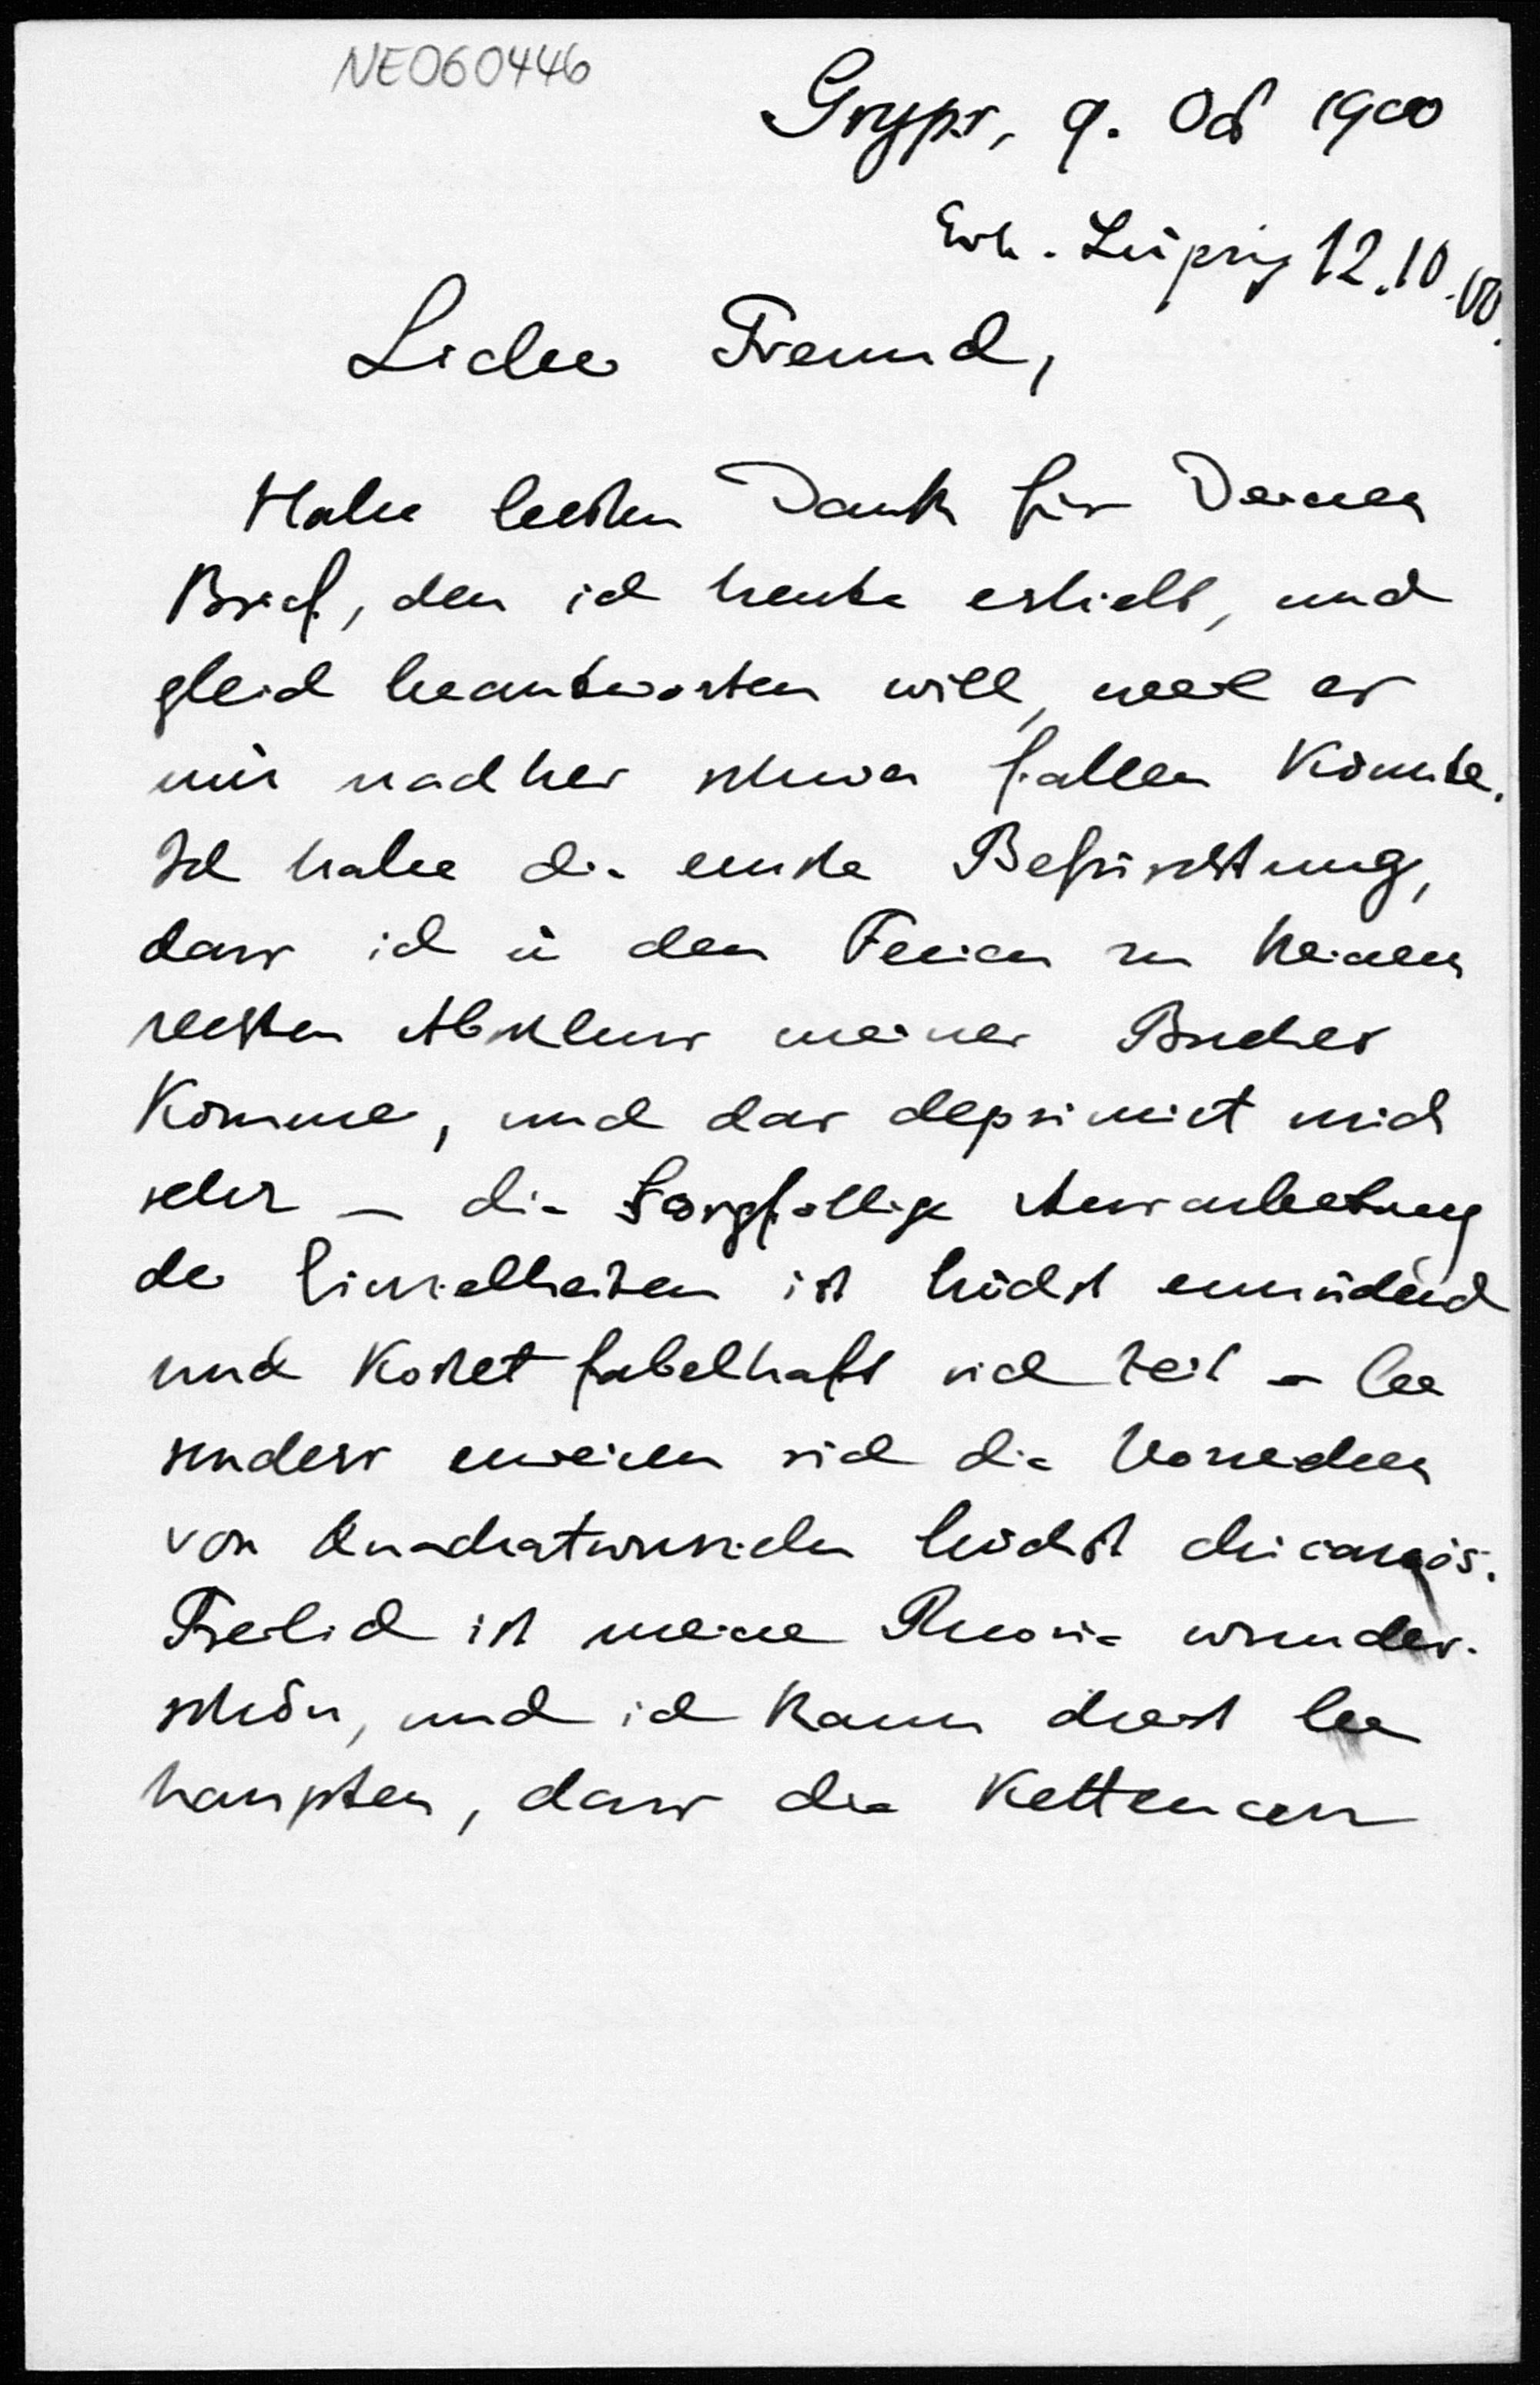 NE060446
Gryps, 9. Oct 1900
Erh. Leipzig 12.10.00.
Lieber Freund,
Habe besten Dank für Deinen
Brief, den ich heute erhielt, und
gleich beantworten will, weil es
mir nachher schwer fallen könnte.
Ich habe die ernste Befürchtung,
dass ich in den Ferien zu keinem
rechten Abschluss meines Buches
komme, und das deprimirt mich
sehr – die sorgfältige Ausarbeitung
der Einzelheiten ist höchst ermüdend
und kostet fabelhaft viel Zeit – be
sonders erweisen sich die Vorzeichen
von Quadratwurzeln höchst chicanös.
Freilich ist meine Theorie wunder-
schön, und ich kann dreist be
haupten, dass die Kettencon